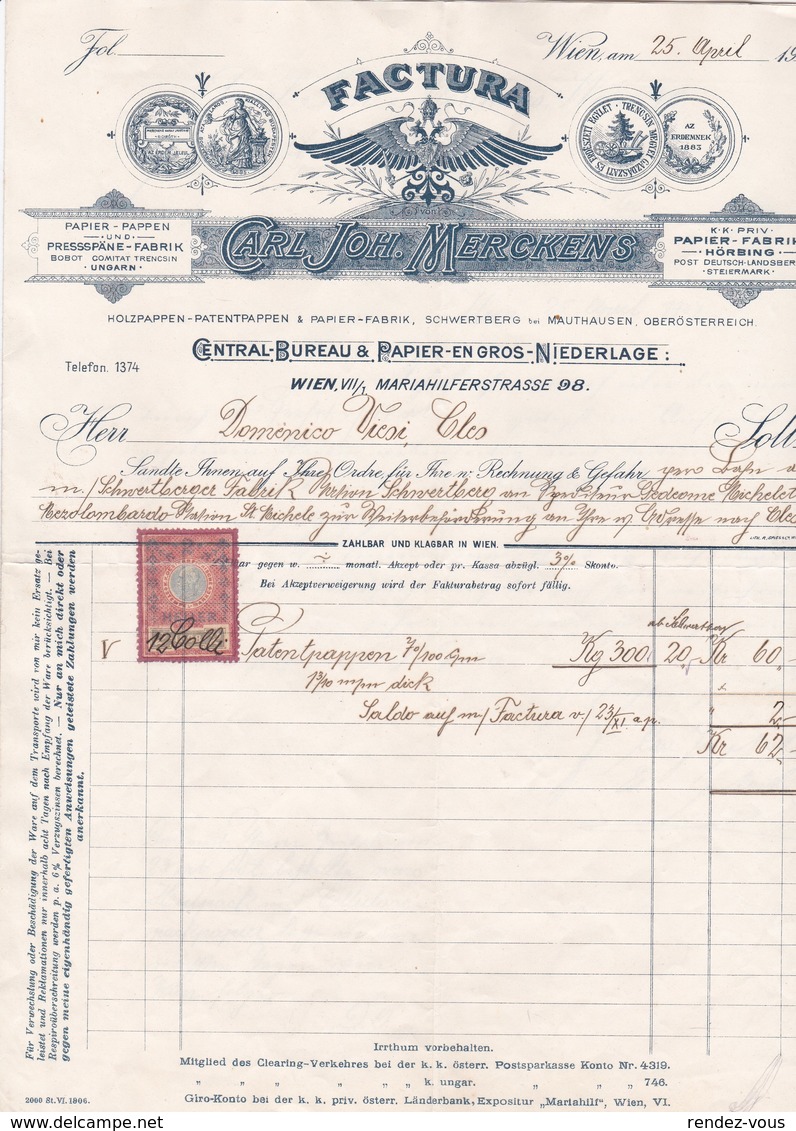 Fol.
Wien, am 25. April 19
FACTURA
AZ ÉRDEM JELEÜL
1881
TRENCSÉN MEGYEI GAZDASÁTI ÉS ERDÉSZETI EGYLET
AZ ERDEMNEK 1883
von
CARL JOH. MERCKENS
PAPIER-PAPPEN
UND
PRESSSPÄNE-FABRIK
BOBOT COMITAT TRENCSIN
UNGARN
K.K. PRIV.
PAPIER-FABRIK
HÖRBING
POST DEUTSCH-LANDSBER
STEIERMARK
HOLZPAPPEN-PATENTPAPPEN & PAPIER-FABRIK, SCHWERTBERG bei MAUTHAUSEN, OBERÖSTERREICH.
CENTRAL-BUREAU & PAPIER-EN GROS-NIEDERLAGE:
Telefon. 1374
WIEN, VII/1 MARIAHILFERSTRASSE 98.
Herr Domenico Viesi, Cles Soll
Sandte Ihnen auf Ihre Ordre, für Ihre n: Rechnung & Gefahr per Bahn a
m/ Schwertberger Fabrik Station Schwertberg an Spediteur Gedeone Michelot
Mezolombardo Station St Michele zur Weiterbeförderung an Ihre w/ Adresse nach Cles
ZAHLBAR UND KLAGBAR IN WIEN.
ar gegen w. ~ monatl. Akzept oder pr. Kassa abzügl. 3% Skonto.
Bei Akzeptverweigerung wird der Fakturabetrag sofort fällig.
ab Schwertberg
V 12 Colli Patentpappen 70/100 c/m Kg 300, 20,- Kr 60,-
1 3/10 m/m dick
Saldo auf m/ Factura v/ 23/XI. a.p. " 2,-
Kr 62,-
Für Verwechslung oder Beschädigung der Ware auf dem Transporte wird von mir kein Ersatz ge-
leistet und Reklamationen nur innerhalb acht Tagen nach Empfang der Ware berücksichtigt. — Bei
Respiroüberschreitung werden p. a. 6% Verzugszinsen berechnet. — Nur an mich direkt oder
gegen meine eigenhändig gefertigten Anweisungen geleistete Zahlungen werden
anerkannt.
Irrthum vorbehalten.
Mitglied des Clearing-Verkehres bei der k. k. österr. Postsparkasse Konto Nr. 4319.
" " " " " k. ungar. " " 746.
Giro-Konto bei der k. k. priv. österr. Länderbank, Expositur „Mariahilf", Wien, VI.
2000 St. VI. 1906.
rendez-vous